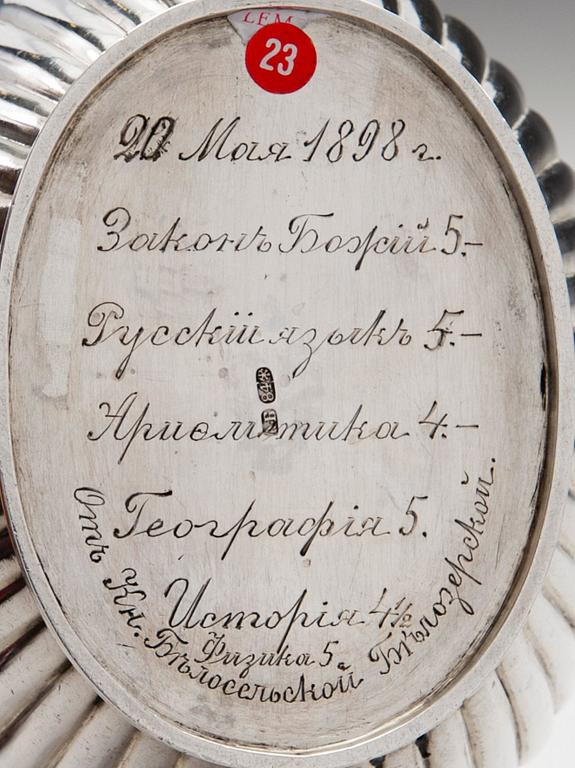 LEM
23
20 Мая 1898 г.
Законъ Божій 5.-
Русскій языкъ 5.-
84
Ариѳметика 4.-
Географія 5.
Исторія 4½
Физика 5
Отъ Кн. Бѣлосельской Бѣлозерской.